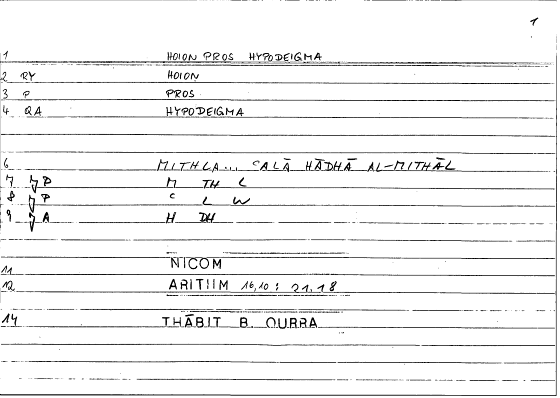 1
1 HOION PROS HYPODEIGMA
2 RY HOION
3 P PROS
4 QA HYPODEIGMA
6 MITHLA... ʿALĀ HĀDHĀ AL-MITHĀL
7 P M TH L
8 P ʿ L W
9 A H DH
11 NICOM
12 ARITIIM 16,10 : 21,18
14 THĀBIT B. QURRA